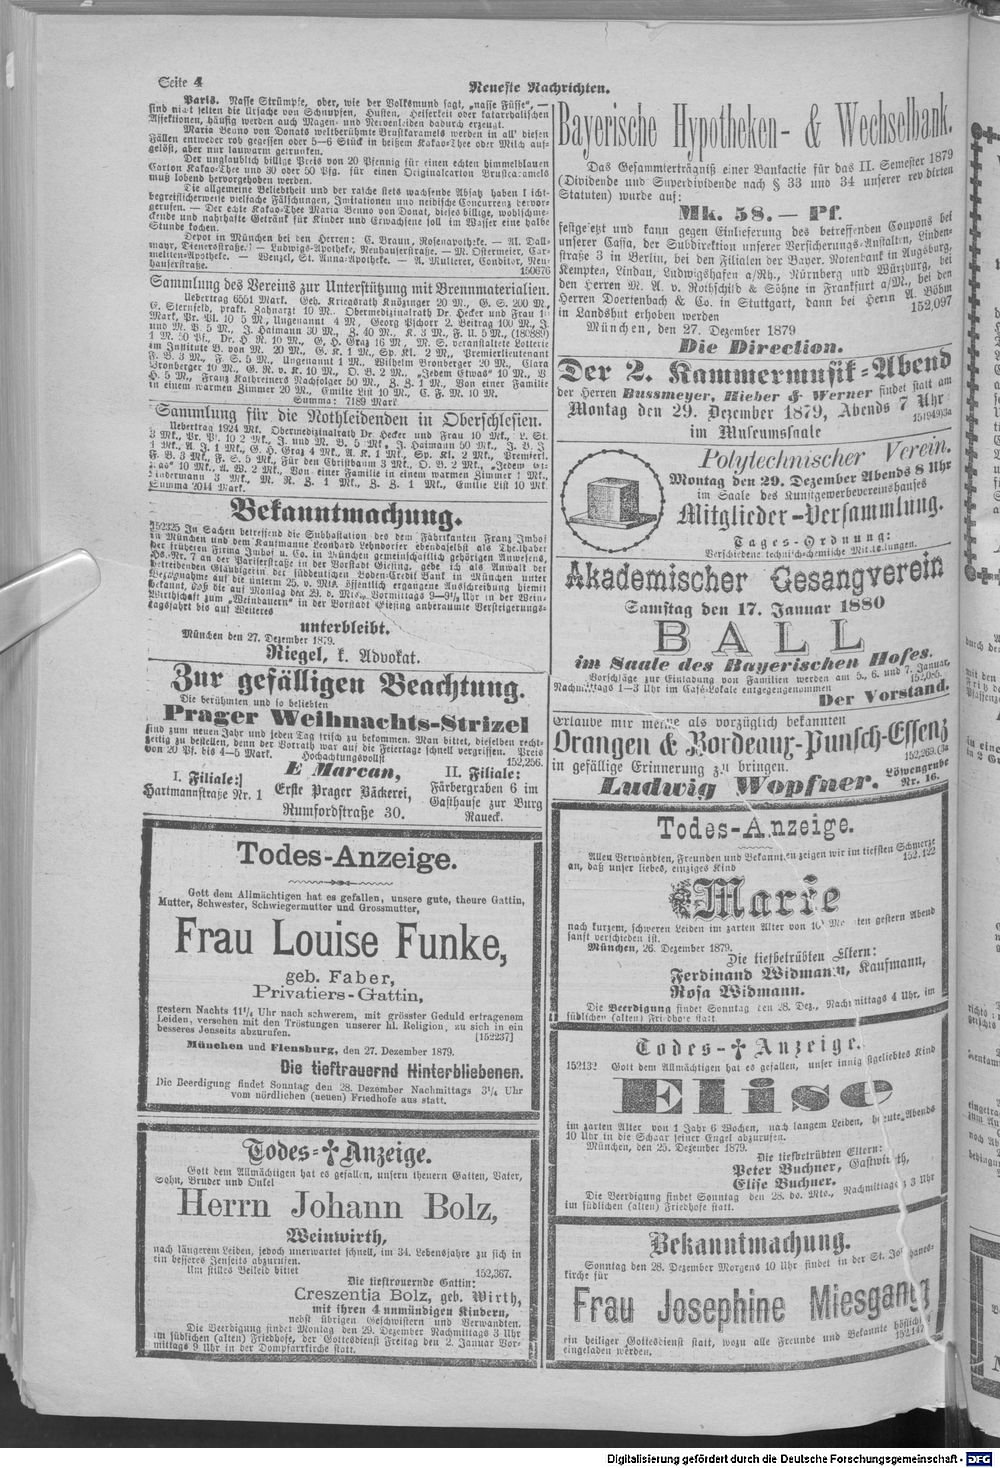 Seite 4
Neueste Nachrichten.
Paris. Nasse Strümpfe, oder, wie der Volksmund sagt, „nasse Füsse“, —
sind nicht selten die Ursache von Schnupfen, Husten, Heiserkeit oder katarrhalischen
Affektionen, häufig werden auch Magen- und Nervenleiden dadurch erzeugt.
Maria Benno von Donats weltberühmte Brustkaramels werden in all' diesen
Fällen entweder roh gegessen oder 5—6 Stück in heißem Kakao-Thee oder Milch aufgelöst,
aber nur lauwarm getrunken.
Der unglaublich billige Preis von 20 Pfennig für einen echten himmelblauen
Carton Kakao-Thee und 30 oder 50 Pfg. für einen Originalcarton Brustcaramels
muß lobend hervorgehoben werden.
Die allgemeine Beliebtheit und der rasche stets wachsende Absatz haben leicht-
begreiflicherweise vielfache Fälschungen, Imitationen und neidische Concurrenz hervor-
gerufen. — Der echte Kakao-Thee Maria Benno von Donat, dieses billige, wohlschme-
ckende und nahrhafte Getränk für Kinder und Erwachsene soll im Wasser eine halbe
Stunde kochen.
Depot in München bei den Herren: C. Braun, Rosenapotheke. — Al. Dall-
mayr, Dienerstraße. — Ludwigs-Apotheke, Neuhauserstraße. — M. Ostermeier, Car-
meliten-Apotheke. — Wenzel, St. Anna-Apotheke. — A. Mulzerer, Conditor, Neu-
hauserstraße. 150676
Sammlung des Vereins zur Unterstützung mit Brennmaterialien.
Uebertrag 6551 Mark. Geh. Kriegsrath Knözinger 20 M., G. S. 200 M.,
C. Sternfeld, prakt. Zahnarzt 10 M. Obermedizinalrath Dr. Hecker und Frau 10
Mark, Pr. Pl. 10 5 M., Ungenannt 4 M., Georg Pschorr 2. Beitrag 100 M., J.
und M. B. 5 M., J. Haimann 30 M., Z. 40 M., K. 3 M., F. U. 5 M.,
1 M. 50 Pf., Dr. H. R. 10 M., G. H. Graz 16 M., M. S. veranstaltete Lotterie
im Institute B. von M. 20 M., G. K. 1 M., Sp. Kl. 2 M., Premierlieutenant
F. B. 3 M., F. S. 5 M., Ungenannt 1 M., Wilhelm Bronberger 20 M., Clara
Bronberger 10 M., G. R. v. K. 10 M., O. B. 2 M., „Jedem Etwas“ 10 M., V.
H. 5 M., Franz Kathreiners Nachfolger 50 M., Z. Z. 1 M., Von einer Familie
in einem warmen Zimmer 20 M., Emilie List 10 M., C. F. N. 10 M.
Summa: 7189 Mark
Sammlung für die Nothleidenden in Oberschlesien.
Uebertrag 1924 Mk. Obermedizinalrath Dr. Hecker und Frau 10 Mk., L. St.
3 Mk., Pr. Pl. 10 2 Mk., J. und M. B. 5 Mk., J. Haimann 50 Mk., J. B. J.
1 Mk., A. J. 1 Mk., G. H. Graz 4 Mk., A. K. 1 Mk., Sp. Kl. 2 Mk., Premierl.
F. B. 3 Mk., F. S. 5 Mk., Für den Christbaum 3 Mk., O. B. 2 Mk., „Jedem et-
was“ 10 Mk., A. W. 2 Mk., Von einer Familie in einem warmen Zimmer 1 Mk.,
Lindermann 3 Mk., M. R. Z. 1 Mk., Z. Z. 1 Mk., Emilie List 10 Mk.
Summa 2044 Mark.
Bekanntmachung.
152325 In Sachen betreffend die Subhastation des dem Fabrikanten Franz Imhof
in München und dem Kaufmanne Leonhard Lehndorfer ebendaselbst als Theilhaber
der früheren Firma Imhof u. Co. in München gemeinschaftlich gehörigen Anwesens,
Hs.-Nr. 7 an der Pariserstraße in der Vorstadt Giesing, gebe ich als Anwalt der
betreibenden Gläubigerin der süddeutschen Boden-Credit Bank in München unter
Bezugnahme auf die unterm 25. v. Mts. öffentlich ergangene Ausschreibung hiemit
bekannt, daß die auf Montag den 29. d. Mts. Vormittags 9—9½ Uhr in der Wein-
wirthschaft zum „Weinbauern“ in der Vorstadt Giesing anberaumte Versteigerungs-
tagsfahrt bis auf Weiteres
unterbleibt.
München den 27. Dezember 1879.
Riegel, k. Advokat.
Zur gefälligen Beachtung.
Die berühmten und so beliebten
Prager Weihnachts-Strizel
sind zum neuen Jahr und jeden Tag frisch zu bekommen. Man bittet, dieselben recht-
zeitig zu bestellen, denn der Vorrath war auf die Feiertage schnell vergriffen. Preis
von 20 Pf. bis 4—5 Mark. Hochachtungsvollst 152,256.
E Marcan,
Erste Prager Bäckerei,
Rumfordstraße 30.
I. Filiale:
Hartmannstraße Nr. 1
II. Filiale:
Färbergraben 6 im
Gasthause zur Burg
Raueck.
Todes-Anzeige.
Gott dem Allmächtigen hat es gefallen, unsere gute, theure Gattin,
Mutter, Schwester, Schwiegermutter und Grossmutter,
Frau Louise Funke,
geb. Faber,
Privatiers-Gattin,
gestern Nachts 11¼ Uhr nach schwerem, mit grösster Geduld ertragenem
Leiden, versehen mit den Tröstungen unserer hl. Religion, zu sich in ein
besseres Jenseits abzurufen. [152237]
München und Flensburg, den 27. Dezember 1879.
Die tieftrauernd Hinterbliebenen.
Die Beerdigung findet Sonntag den 28. Dezember Nachmittags 3¼ Uhr
vom nördlichen (neuen) Friedhofe aus statt.
Todes-✝Anzeige.
Gott dem Allmächtigen hat es gefallen, unsern theuern Gatten, Vater,
Sohn, Bruder und Onkel
Herrn Johann Bolz,
Weinwirth,
nach längerem Leiden, jedoch unerwartet schnell, im 34. Lebensjahre zu sich in
ein besseres Jenseits abzurufen.
Um stilles Beileid bittet 152,367.
Die tieftrauernde Gattin:
Creszentia Bolz, geb. Wirth,
mit ihren 4 unmündigen Kindern,
nebst übrigen Geschwistern und Verwandten.
Die Beerdigung findet Montag den 29. Dezember Nachmittags 3 Uhr
im südlichen (alten) Friedhofe, der Gottesdienst Freitag den 2. Januar Vor-
mittags 9 Uhr in der Dompfarrkirche statt.
Bayerische Hypotheken- & Wechselbank.
Das Gesammterträgniß einer Bankactie für das II. Semester 1879
(Dividende und Superdividende nach § 33 und 34 unserer revidirten
Statuten) wurde auf:
Mk. 58. — Pf.
festgesetzt und kann gegen Einlieferung des betreffenden Coupons bei
unserer Cassa, der Subdirektion unserer Versicherungs-Anstalten, Linden-
straße 3 in Berlin, bei den Filialen der Bayer. Notenbank in Augsburg,
Kempten, Lindau, Ludwigshafen a/Rh., Nürnberg und Würzburg, bei
den Herren M. A. v. Rothschild & Söhne in Frankfurt a/M., bei den
Herren Doertenbach & Co. in Stuttgart, dann bei Herrn A. Böhm
in Landshut erhoben werden 152,097
München, den 27. Dezember 1879
Die Direction.
Der 2. Kammermusik-Abend
der Herren Bussmeyer, Hieber & Werner findet statt am
Montag den 29. Dezember 1879, Abends 7 Uhr
im Museumssaale 151949)3a
Polytechnischer Verein.
Montag den 29. Dezember Abends 8 Uhr
im Saale des Kunstgewerbevereinshauses
Mitglieder-Versammlung.
Tages-Ordnung:
Verschiedene technisch-chemische Mittheilungen.
Akademischer Gesangverein
Samstag den 17. Januar 1880
BALL
im Saale des Bayerischen Hofes.
Vorschläge zur Einladung von Familien werden am 5., 6. und 7. Januar,
Nachmittags 1—3 Uhr im Café-Lokale entgegengenommen 152,085.
Der Vorstand.
Erlaube mir meine als vorzüglich bekannten
Orangen & Bordeaux-Punsch-Essenz
in gefällige Erinnerung zu bringen. 152,269.(3a
Ludwig Wopfner. Löwengrube
Nr. 16.
Todes-Anzeige.
Allen Verwandten, Freunden und Bekannten zeigen wir im tiefsten Schmerze
an, daß unser liebes, einziges Kind 152,122
Marie
nach kurzem, schweren Leiden im zarten Alter von Monaten gestern Abend
sanft verschieden ist.
München, 26. Dezember 1879.
Die tiefbetrübten Eltern:
Ferdinand Widmann, Kaufmann,
Rosa Widmann.
Die Beerdigung findet Sonntag den 28. Dez., Nachmittags 4 Uhr, im
südlichen (alten) Friedhofe statt
Todes-✝Anzeige.
152132 Gott dem Allmächtigen hat es gefallen, unser innigstgeliebtes Kind
Elise
im zarten Alter von 1 Jahr 6 Wochen, nach langem Leiden, heute Abends
10 Uhr in die Schaar seiner Engel abzurufen.
München, den 25. Dezember 1879.
Die tiefbetrübten Eltern:
Peter Buchner, Gastwirth,
Elise Buchner.
Die Beerdigung findet Sonntag den 28. ds. Mts., Nachmittags 3 Uhr
im südlichen (alten) Friedhofe statt.
Bekanntmachung.
Sonntag den 28. Dezember Morgens 10 Uhr findet in der St. Johannes-
kirche für
Frau Josephine Miesgang
ein heiliger Gottesdienst statt, wozu alle Freunde und Bekannte höflichst
eingeladen werden.
Digitalisierung gefördert durch die Deutsche Forschungsgemeinschaft - DFG